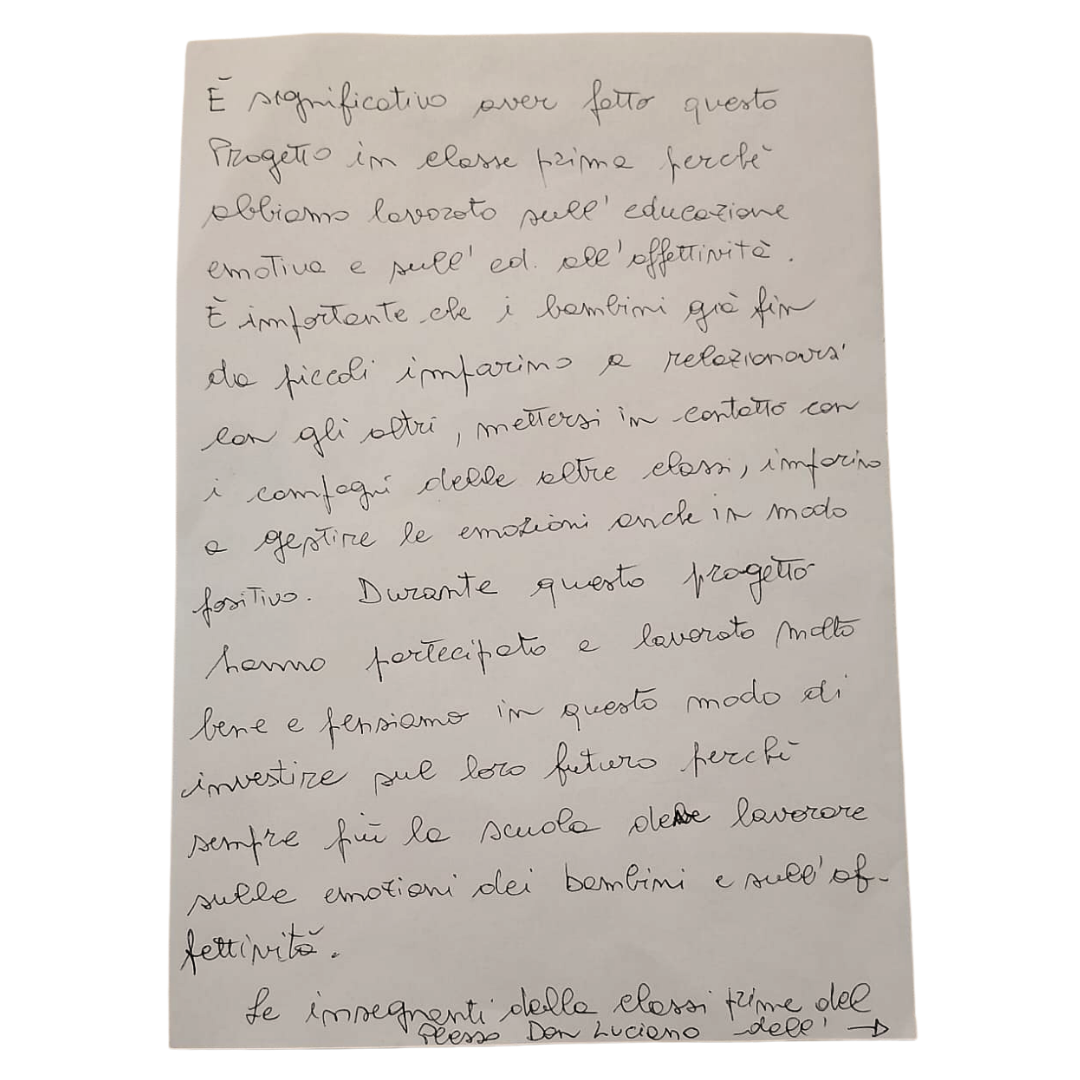 È significativo aver fatto questo
Progetto in classe prima perchè
abbiamo lavorato sull'educazione
emotiva e sull'ed. all'affettività.
È importante che i bambini già fin
da piccoli imparino a relazionarsi
con gli altri, mettersi in contatto con
i compagni delle altre classi, imparino
a gestire le emozioni anche in modo
positivo. Durante questo progetto
hanno partecipato e lavorato molto
bene e pensiamo in questo modo di
investire sul loro futuro perchè
sempre più la scuola deve lavorare
sulle emozioni dei bambini e sull'af-
fettività.
Le insegnanti delle classi prime del
Plesso Don Luciano dell' →